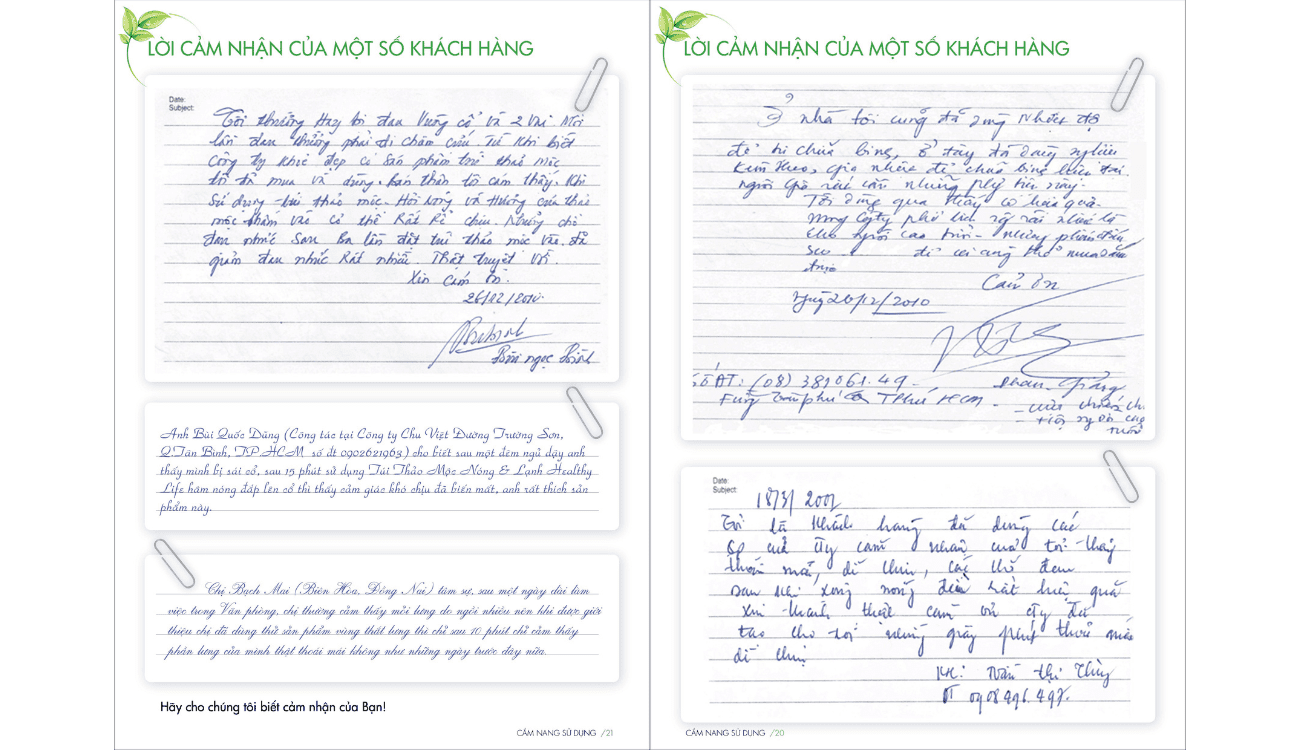 LỜI CẢM NHẬN CỦA MỘT SỐ KHÁCH HÀNG
Date:
Subject:
Tôi thường hay bị đau vương cổ và 2 vai mỗi
lần đau thường phải đi châm cứu. Từ khi biết
công ty khoẻ đẹp có sản phẩm túi thảo mộc
tôi đã mua và dùng. bản thân tôi cảm thấy. khi
sử dụng túi thảo mộc. Hơi nóng và hương của thảo
mộc thấm vào cơ thể Rất dễ chịu. Những chỗ
đau nhức sau ba lần đặt túi thảo mộc vào. đã
giảm đau nhức Rất nhiều. Thật tuyệt vời.
Xin cám ơn.
26/12/2010.
Bùi ngọc Bình
Anh Bùi Quốc Dũng (Công tác tại Công ty Chu Việt Đường Trường Sơn,
Q.Tân Bình, TP.HCM số đt 0902621963) cho biết sau một đêm ngủ dậy anh
thấy mình bị sái cổ, sau 15 phút sử dụng Túi Thảo Mộc Nóng & Lạnh Healthy
Life hâm nóng đắp lên cổ thì thấy cảm giác khó chịu đã biến mất, anh rất thích sản
phẩm này.
Chị Bạch Mai (Biên Hòa, Đồng Nai) tâm sự, sau một ngày dài làm
việc trong Văn phòng, chị thường cảm thấy mỏi lưng do ngồi nhiều nên khi được giới
thiệu chị đã dùng thử sản phẩm vùng thắt lưng thì chỉ sau 10 phút chị cảm thấy
phần lưng của mình thật thoải mái không như những ngày trước đây nữa.
Hãy cho chúng tôi biết cảm nhận của Bạn!
CẨM NANG SỬ DỤNG /21
LỜI CẢM NHẬN CỦA MỘT SỐ KHÁCH HÀNG
Ở nhà tôi cũng đã dùng nhiều
để trị chữa bệnh, ở đây đã dùng
những
Tôi dùng qua thấy có hiệu quả.
mong Cty phổ
cho người cao
để ai cũng có thể mua
được
Cảm ơn
Ngày 26/12/2010
Số ĐT: (08) 381061.49 -
HCM -
Date:
Subject:
18/3/2007
Tôi là khách hàng đã dùng các
sp của Cty cảm nhận của tôi thấy
thoải mái, dễ chịu,
sau khi xong nóng rất hiệu quả
xin thành thật cảm ơn Cty đã
tạo cho tôi những giây phút thoải mái
dễ chịu
KH: Trần thị Thùy
ĐT 0908496.497.
CẨM NANG SỬ DỤNG /20